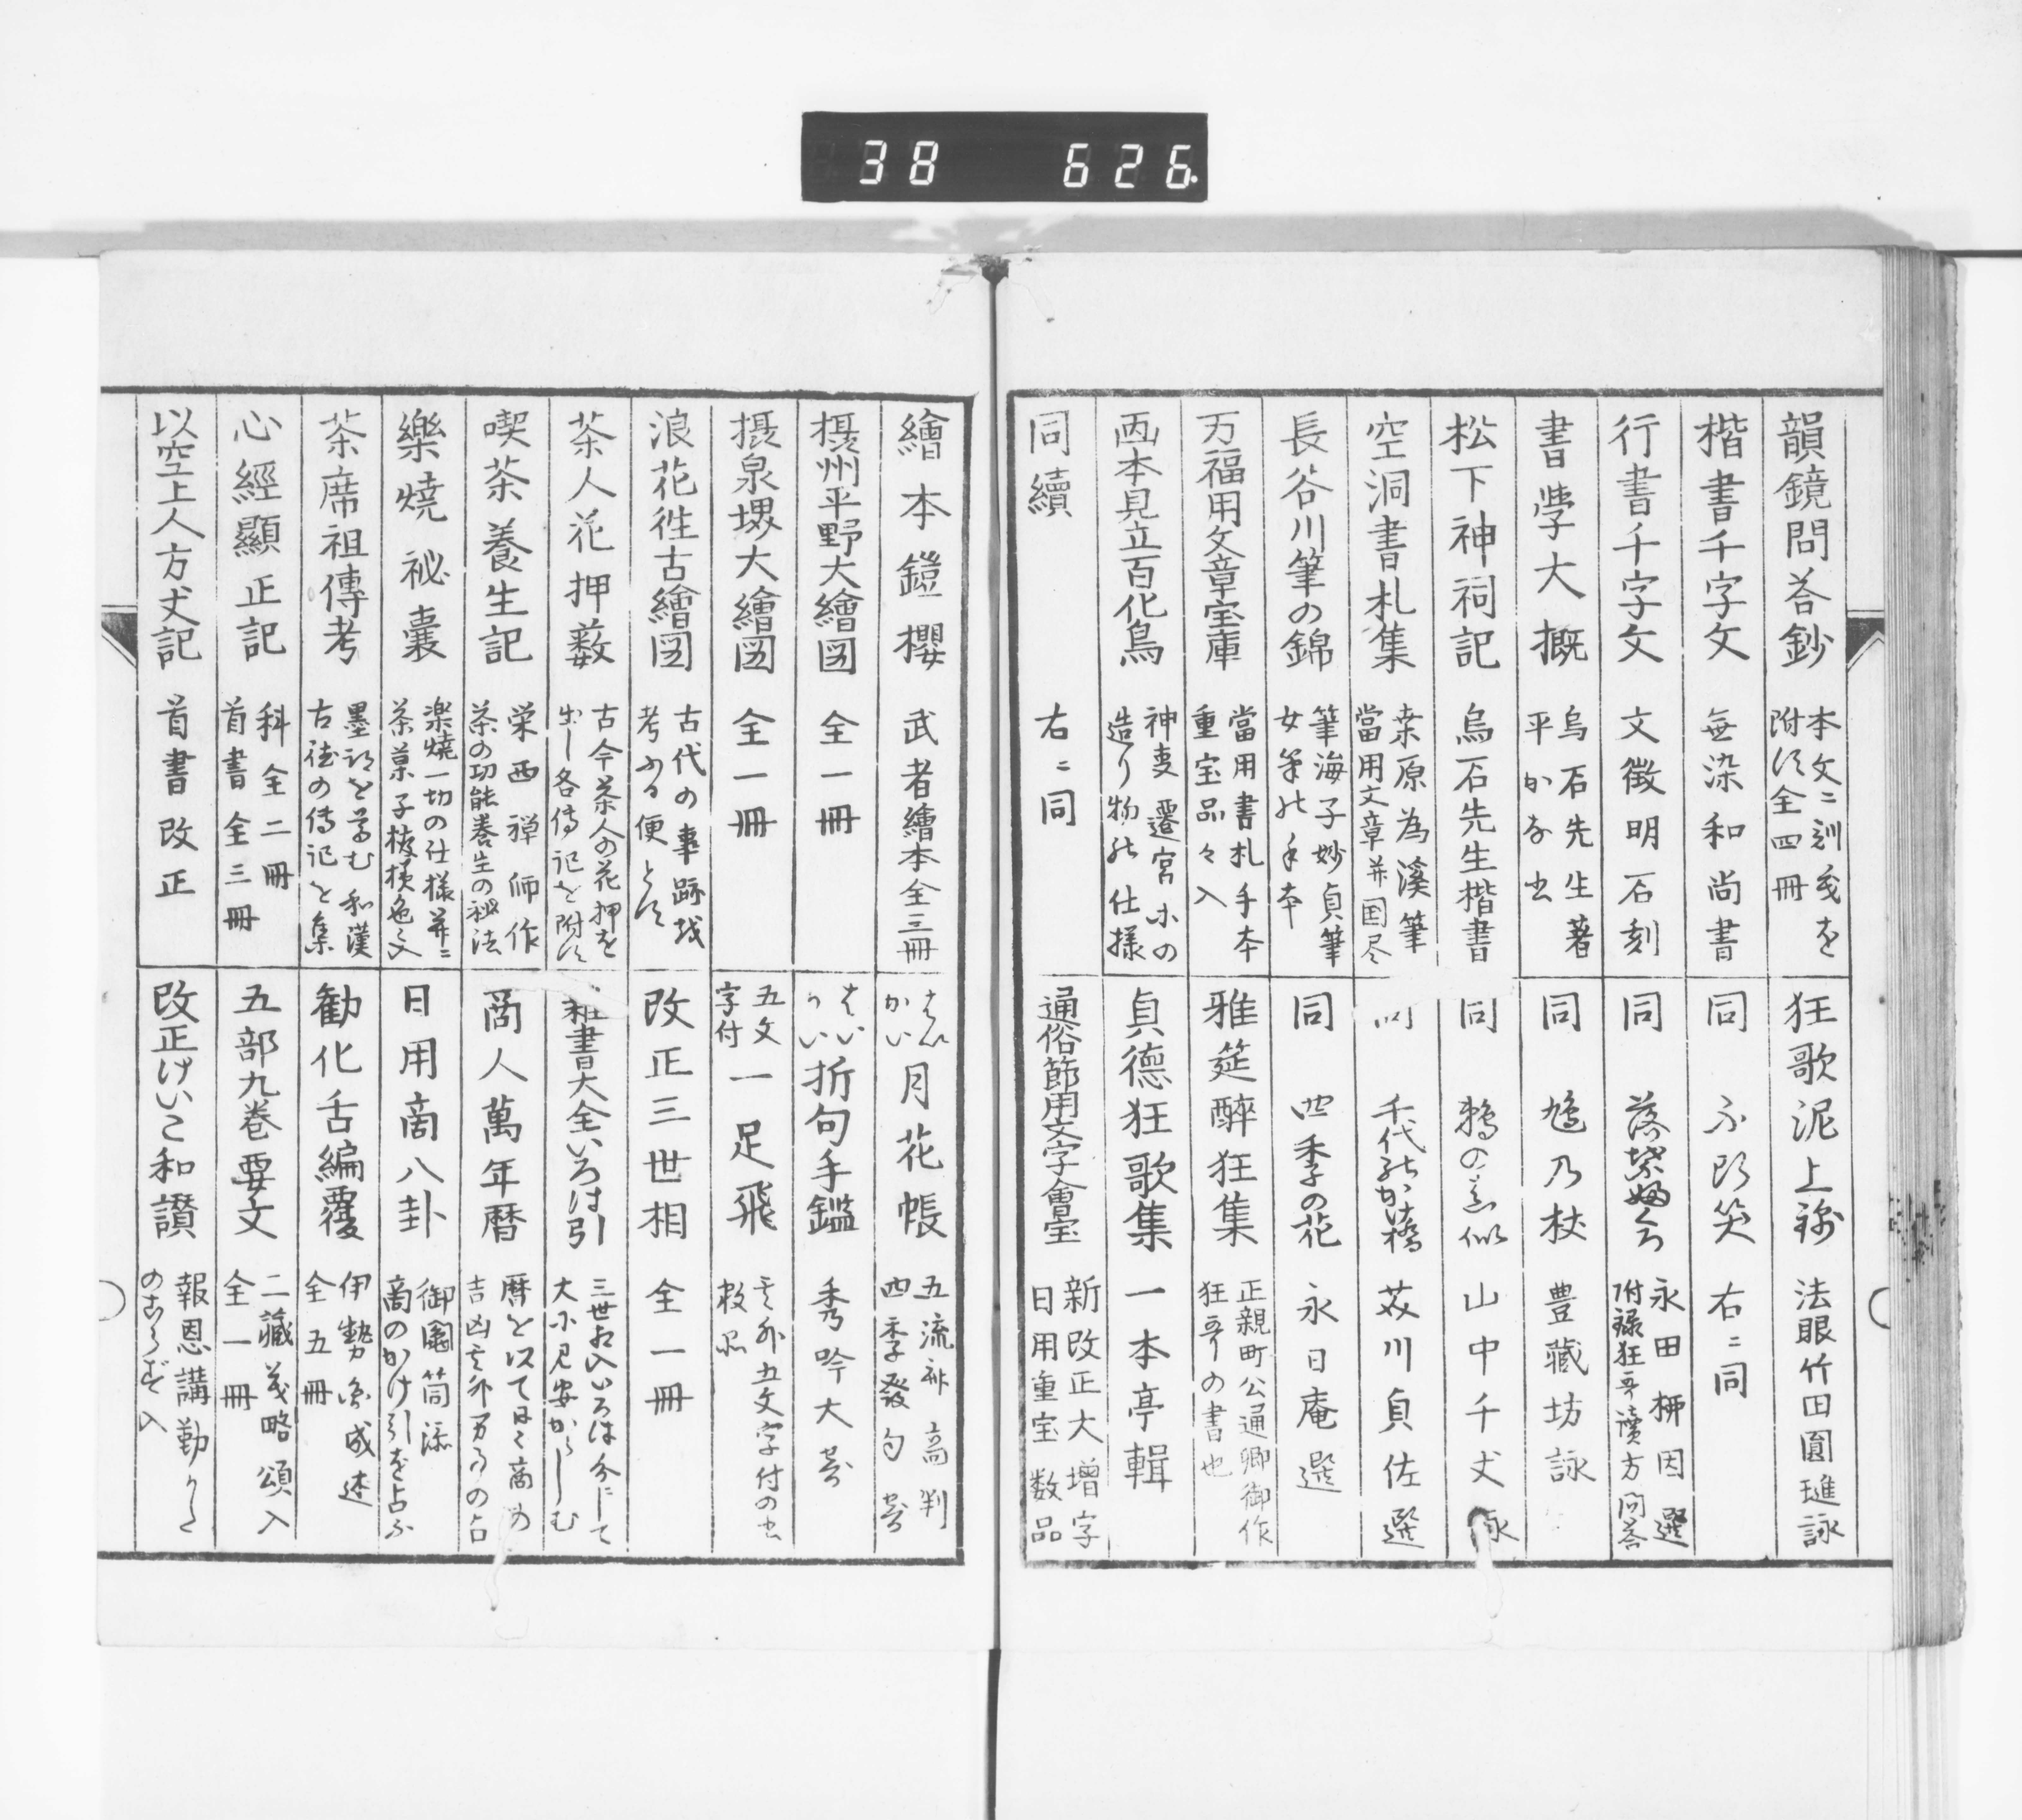 38 626
韻鏡問荅鈔 本文ニ訓義を附ス全四冊
楷書千字文 無染和尚書
行書千字文 文徴明石刻
書学大概 烏石先生著 平かな出
松下神祠記 烏石先生楷書
空洞書札集 桒原為溪筆 當用文章并国尽
長谷川筆の錦 筆海子妙貞筆 女筆の手本
万福用文章宝庫 當用書札手本 重宝品々入
西本見立百化鳥 神事遷宮ホの造り物の仕様
同續 右ニ同
狂歌泥上 法眼竹田圓璡詠
同 右ニ同
同 落葉 永田柳因選 附録狂哥讀方問荅
同 鳩乃杖 豊藏坊詠
同 鵜の真似 山中千丈詠
同 千代のか橋 苅川貞佐選
同 四季の花 永日庵選
雅筵醉狂集 正親町公通卿御作 狂哥の書也
貞德狂歌集 一本亭輯
通俗節用文字會宝 新改正大増字 日用重宝数品
繪本鐙櫻 武者繪本全三冊
摂州平野大繪図 全一冊
摂泉堺大繪図 全一冊
浪花徃古繪図 古代の事跡を考ふる便とす
茶人花押薮 古今茶人の花押を出し各傳記を附ス
喫茶養生記 栄西禅師作 茶の功能養生の秘法
樂燒祕嚢 楽燒一切の仕様并ニ茶菓子
茶席祖傳考 墨跡を尊む和漢古徳の傳記を集
心經顯正記 科全二冊 首書全三冊
以空上人方丈記 首書改正
はいかい 月花帳 五流 高判 四季發句
はいかい 折句手鑑 秀吟大寄
五文字付 一足飛 其外五文字付の
改正三世相 全一冊
雑書大全いろは引 三世相入いろは分にして大ホ見安からしむ
啇人萬年暦 暦を以て日々商の吉凶其外万事の占
日用啇八卦 御圖筒添 啇のかけ引を占ふ
勧化舌編覆 伊勢魚成述 全五冊
五部九巻要文 二藏義略頌入 全一冊
改正けいこ和讃 報恩講勤 入